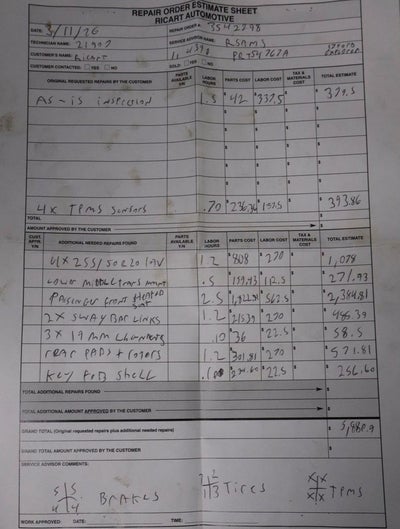 REPAIR ORDER ESTIMATE SHEET
RICART AUTOMOTIVE
DATE: 3/11/26 REPAIR ORDER #: 3542298
TECHNICIAN NAME: 21907 SERVICE ADVISOR NAME: RSAMS
CUSTOMER'S NAME: Ricart PRT54767A
CUSTOMER CONTACTED: YES NO SOLD: YES NO
ORIGINAL REQUESTED REPAIRS BY THE CUSTOMER PARTS AVAILABLE Y/N LABOR HOURS PARTS COST LABOR COST TAX & MATERIALS COST TOTAL ESTIMATE
AS-IS INSPECTION 1.5 $42 $337.5 $379.5
4x TPMS SENSORS .70 $236.36 $157.5 $393.86
TOTAL
AMOUNT APPROVED BY THE CUSTOMER
CUST. APPR. Y/N ADDITIONAL NEEDED REPAIRS FOUND PARTS AVAILABLE Y/N LABOR HOURS PARTS COST LABOR COST TAX & MATERIALS COST TOTAL ESTIMATE
4x 255/50R20 1.2 $808 $270 $1,078
Lower middle trans mount .5 $159.43 $112.5 $271.93
Passenger front heated seat 2.5 $562.5 $2,384.81
2x SWAY BAR LINKS 1.2 $215.39 $270 $485.39
3x 19mm .10 $36 $22.5 $58.5
rear PADS + rotors 1.2 $301.81 $270 $571.81
KEY FOB Shell $22.5 $256.60
TOTAL ADDITIONAL REPAIRS FOUND
TOTAL ADDITIONAL AMOUNT APPROVED BY THE CUSTOMER
GRAND TOTAL (Original requested repairs plus additional needed repairs)
GRAND TOTAL AMOUNT APPROVED BY THE CUSTOMER
SERVICE ADVISOR COMMENTS:
5 5 4 4 BRAKES 2 2 1 3 Tires X X X X TPMS
WORK APPROVED: DATE: TIME: